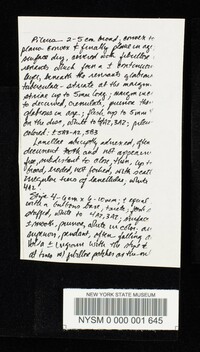 Pileus 2-5 cm broad, convex to
plano-convex & finally plane in age
surface dry, covered with fibrillose
remnants which form a ± continuous
layer, beneath the remnants glabrous
tuberculate-striate at the margin
striae up to 5mm long; margin
to decurved, crenulate; purine the
glabrous in age; flesh up to 5mm
at the disc, white to 4A2, 3A2; pileus
colored: ± 3B3-A2, 5B3
Lamellae abruptly adnexed, often
decurrent tooth and not appearing
free, subdistant to close, thin, up to
broad, eroded, not forked, with
tiers of lamellulae, white
4A2
Stipe 4-9cm x 4-10mm; ± equal
with a bulbous base, twisted,
stuffed, white to 4A2, 3A2; surface
± smooth, pruinose, white in color. an-
superior, pendant, often falling
± with the stipe &
at times w/ patches on the
NEW YORK STATE MUSEUM
NYSM 0 000 001 645